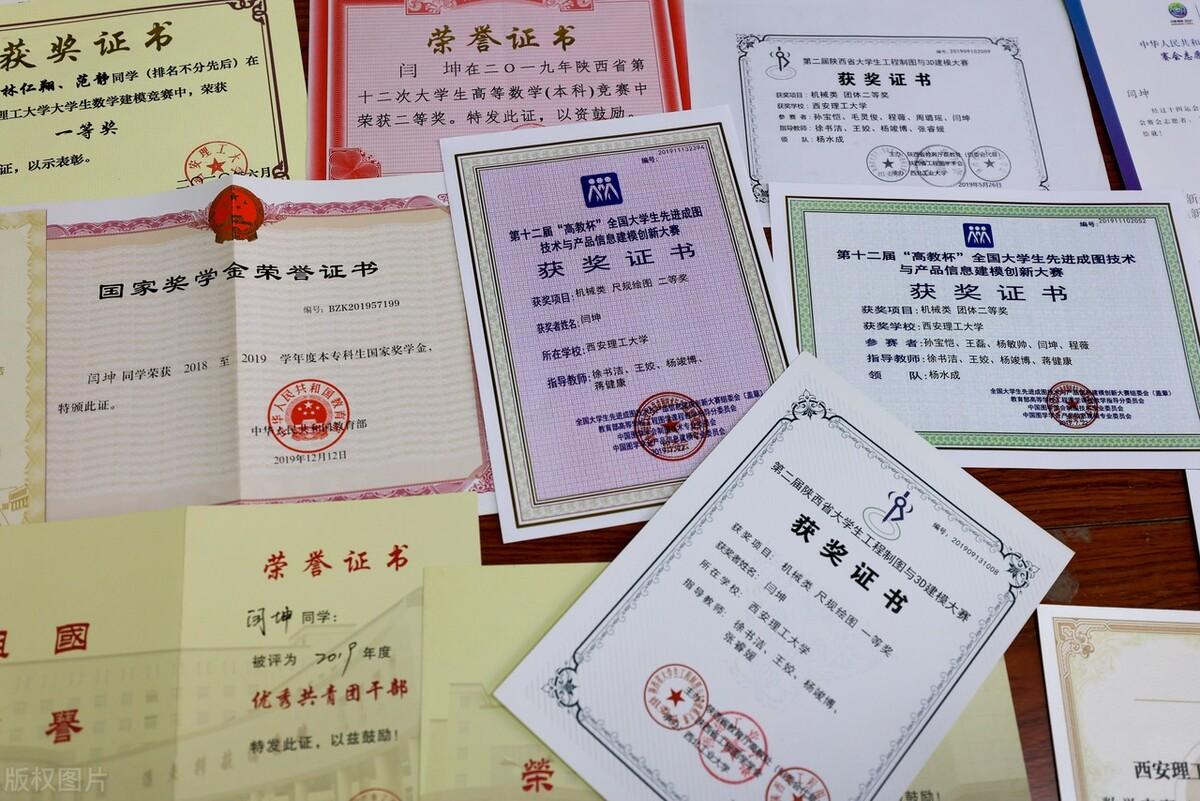 获奖证书
林仁翔、范静同学（排名不分先后）在
理工大学大学生数学建模竞赛中，荣获
一等奖
证，以示表彰。
荣誉证书
闫 坤在二〇一九年陕西省第
十二次大学生高等数学(本科)竞赛中
荣获二等奖。特发此证，以资鼓励。
编号：201909102009
第二届陕西省大学生工程制图与3D建模大赛
获奖证书
获奖项目：机械类 团体二等奖
获奖学校：西安理工大学
参 赛 者：孙宝恺、毛灵俊、程薇、周璐瑶、闫坤
指导教师：徐书洁、王姣、杨竣博、张睿媛
领 队：杨水成
西北工业大学
2019年5月26日
中华人民共
赛会志愿
闫坤
国家奖学金荣誉证书
编号：BZK201957199
闫坤 同学荣获 2018 至 2019 学年度本专科生国家奖学金，
特颁此证。
中华人民共和国教育部
2019年12月12日
编号：201911132394
第十二届“高教杯”全国大学生先进成图
技术与产品信息建模创新大赛
获奖证书
获奖项目：机械类 尺规绘图 二等奖
获奖者姓名：闫坤
所在学校：西安理工大学
指导教师：徐书洁、王姣、杨竣博、
蒋健康
编号：201911102052
第十二届“高教杯”全国大学生先进成图技术
与产品信息建模创新大赛
获奖证书
获奖项目：机械类 团体二等奖
获奖学校：西安理工大学
参 赛 者：孙宝恺、王磊、杨敏帅、闫坤、程薇
指导教师：徐书洁、王姣、杨竣博、蒋健康
领 队：杨水成
全国大学生先进成图技术与产品信息建模创新大赛组委会（盖章）
國
譽
荣誉证书
闫坤 同学：
被评为 2019 年度
优秀共青团干部
特发此证，以兹鼓励！
榮
第二届陕西省大学生工程制图与3D建模大赛
编号：201909131008
获奖证书
获奖项目：机械类 尺规绘图 一等奖
获奖者姓名：闫坤
所在学校：西安理工大学
指导教师：徐书洁、王姣、杨竣博、
张睿媛
鼓励！
西安理工
版权图片